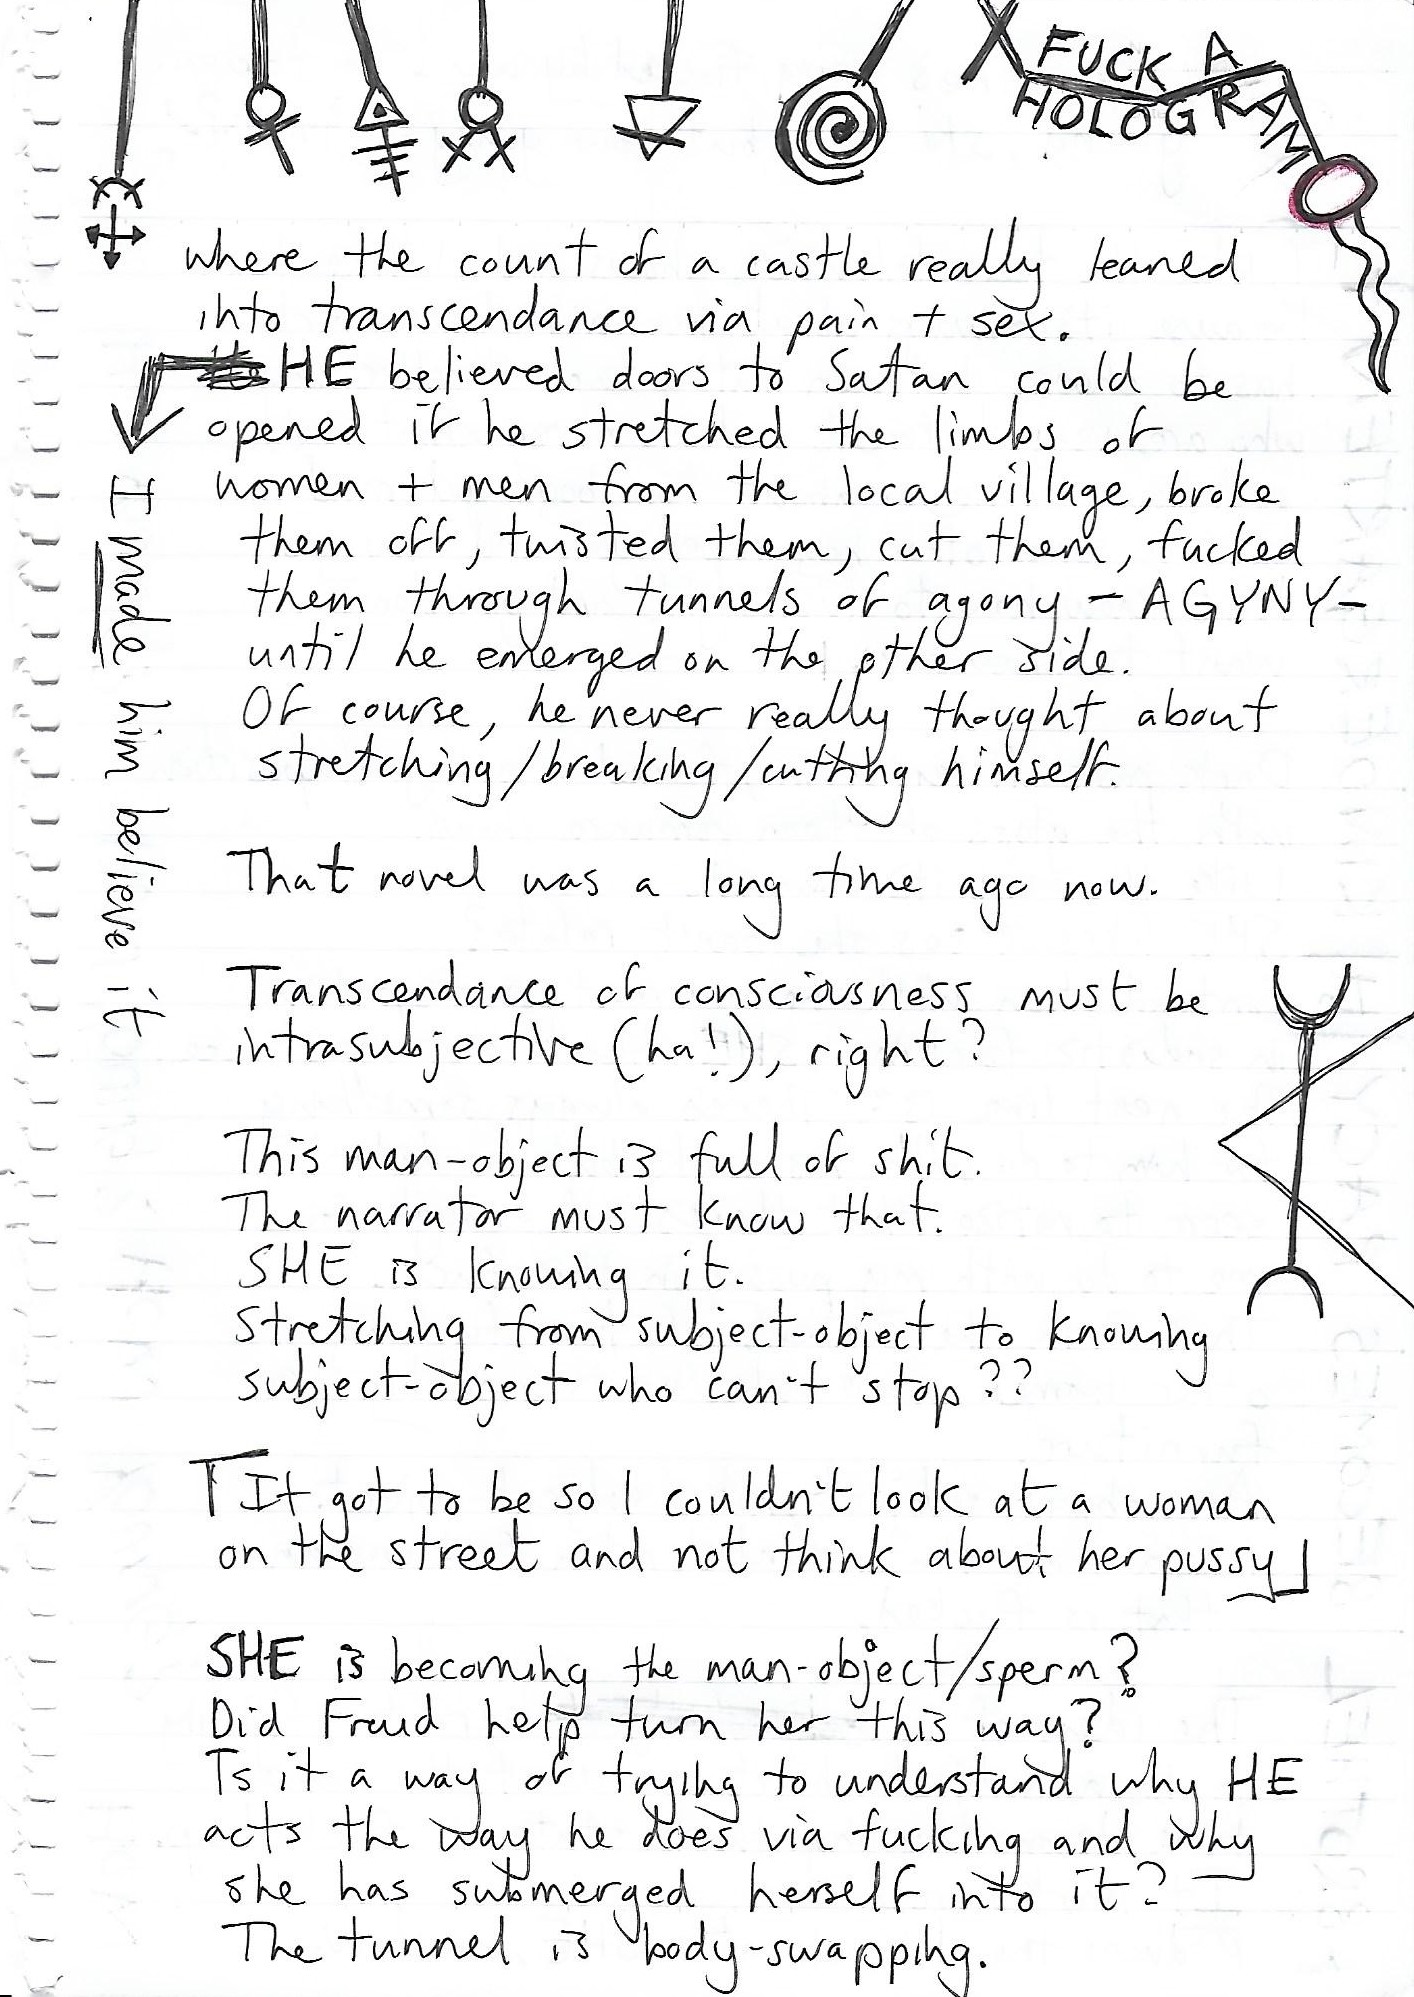 FUCK A
HOLOGRAM
where the count of a castle really leaned
into transcendance via pain + sex.
HE believed doors to Satan could be
opened if he stretched the limbs of
women + men from the local village, broke
them off, twisted them, cut them, fucked
them through tunnels of agony - AGYNY-
until he emerged on the other side.
Of course, he never really thought about
stretching/breaking/cutting himself.
I made him believe it
That novel was a long time ago now.
Transcendance of consciousness must be
intrasubjective (ha!), right?
This man-object is full of shit.
The narrator must know that.
SHE is knowing it.
Stretching from subject-object to knowing
subject-object who can't stop??
It got to be so I couldn't look at a woman
on the street and not think about her pussy
SHE is becoming the man-object/sperm?
Did Freud help turn her this way?
Is it a way of trying to understand why HE
acts the way he does via fucking and why
she has submerged herself into it?
The tunnel is body-swapping.